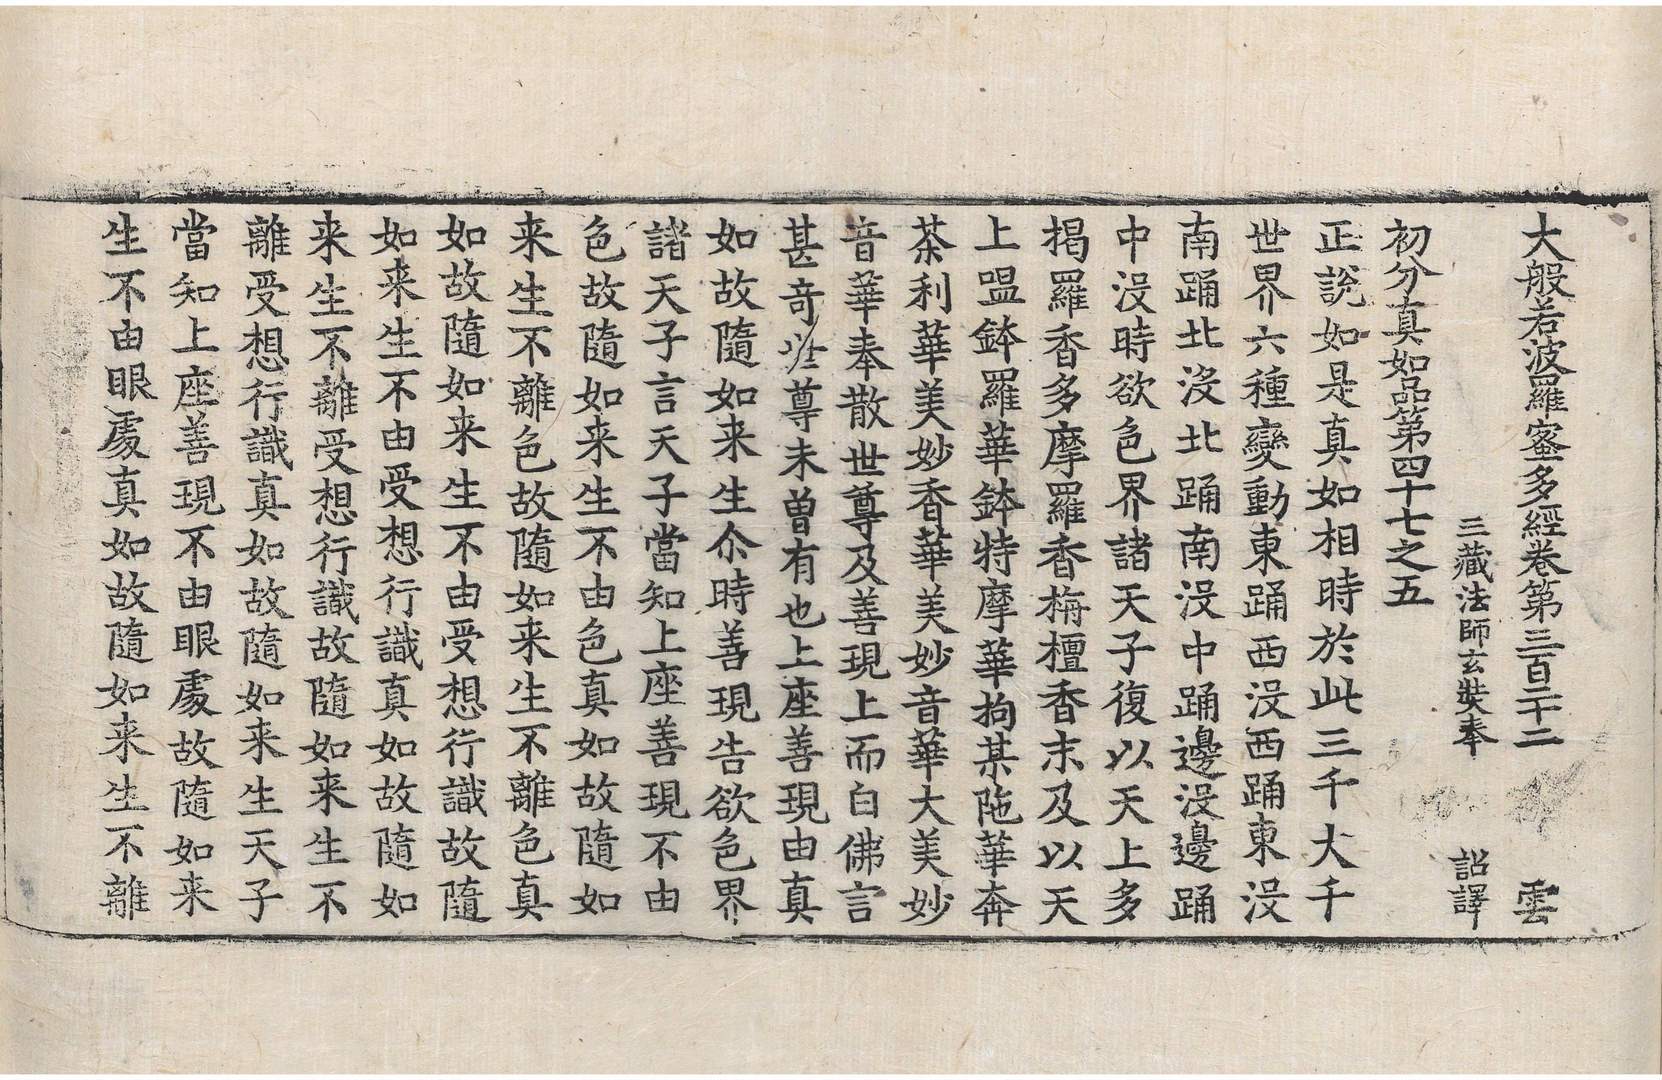 大般若波羅蜜多經卷第三百二十二 雲
三藏法師玄奘奉 詔譯
初分真如品第四十七之五
正說如是真如相時於此三千大千
世界六種變動東踊西沒西踊東沒
南踊北沒北踊南沒中踊邊沒邊踊
中沒時欲色界諸天子復以天上多
揭羅香多摩羅香栴檀香末及以天
上嗢鉢羅華鉢特摩華拘某陁華奔
荼利華美妙香華美妙音華大美妙
音華奉散世尊及善現上而白佛言
甚奇世尊未曽有也上座善現由真
如故隨如来生尒時善現告欲色界
諸天子言天子當知上座善現不由
色故隨如来生不由色真如故隨如
来生不離色故隨如来生不離色真
如故隨如来生不由受想行識故隨
如来生不由受想行識真如故隨如
来生不離受想行識故隨如来生不
離受想行識真如故隨如来生天子
當知上座善現不由眼處故隨如来
生不由眼處真如故隨如来生不離